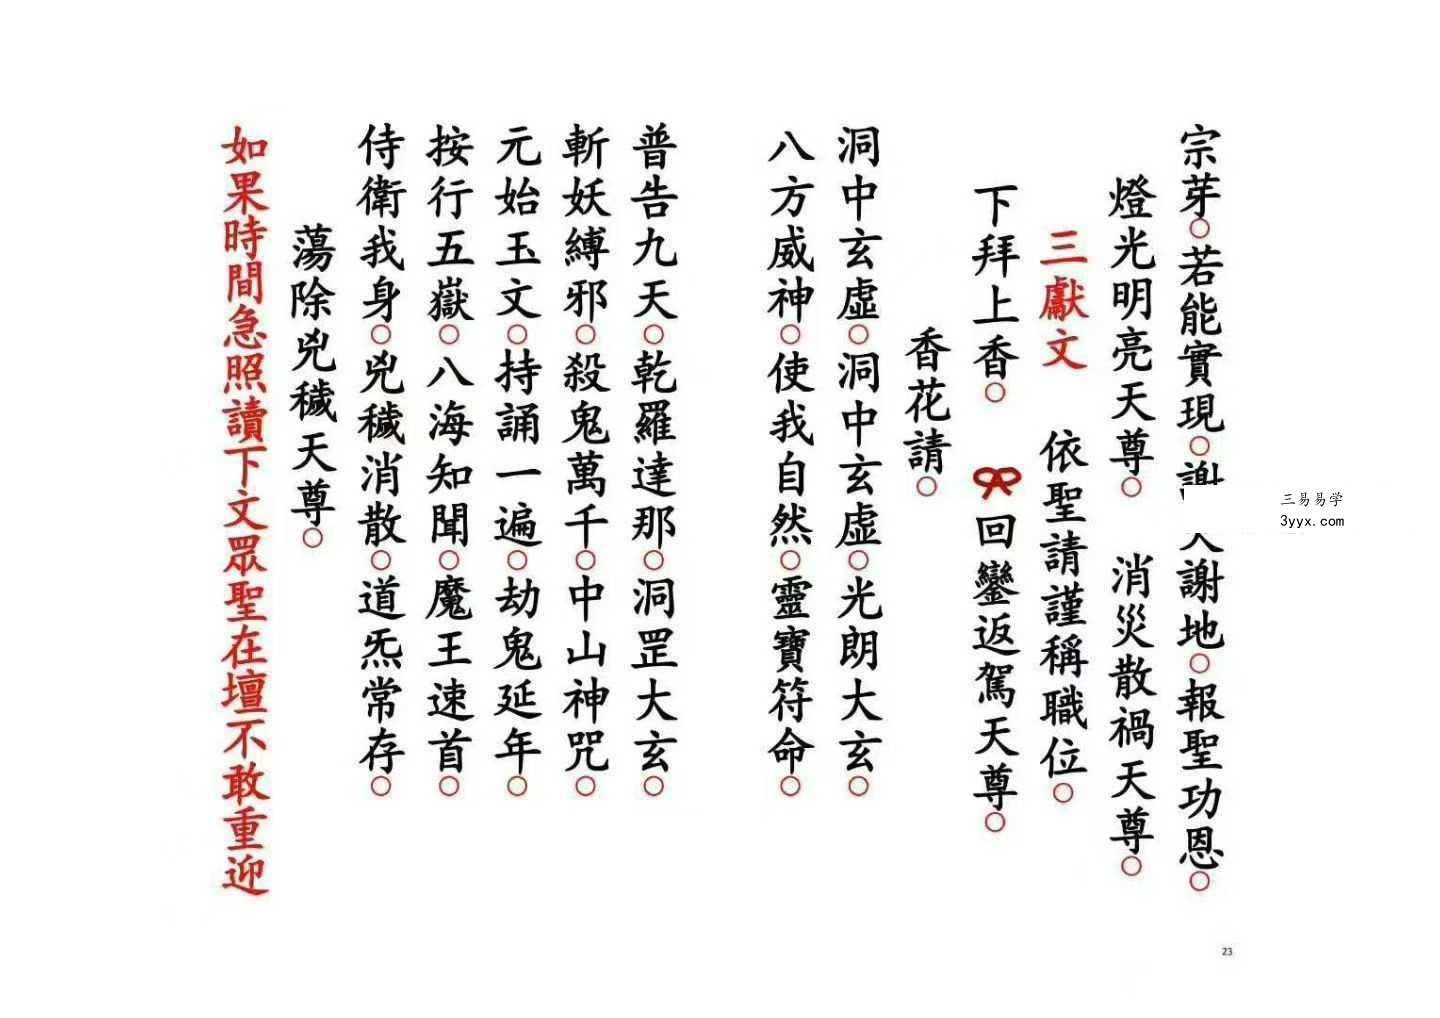 宗芽○若能實現○謝天謝地○報聖功恩○
燈光明亮天尊○　消災散禍天尊○
三獻文　依聖請謹稱職位○
下拜上香○　回鑾返駕天尊○
香花請○
洞中玄虛○洞中玄虛○光朗大玄○
八方威神○使我自然○靈寶符命○
普告九天○乾羅達那○洞罡大玄○
斬妖縛邪○殺鬼萬千○中山神咒○
元始玉文○持誦一遍○劫鬼延年○
按行五嶽○八海知聞○魔王速首○
侍衛我身○兇穢消散○道炁常存○
蕩除兇穢天尊○
如果時間急照讀下文眾聖在壇不敢重迎
三易易学
3yyx.com
23